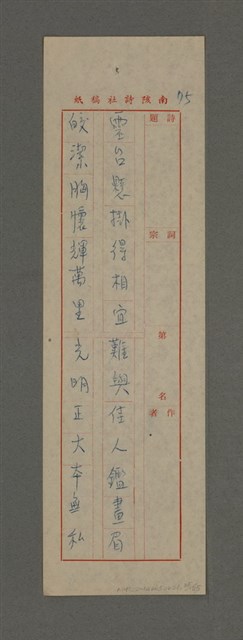 南陔詩社稿紙
75
詩題
詞宗
第 名
作者
雲台懸掛得相宜難與佳人鑑畫眉
皎潔胸懷輝萬里光明正大本無私